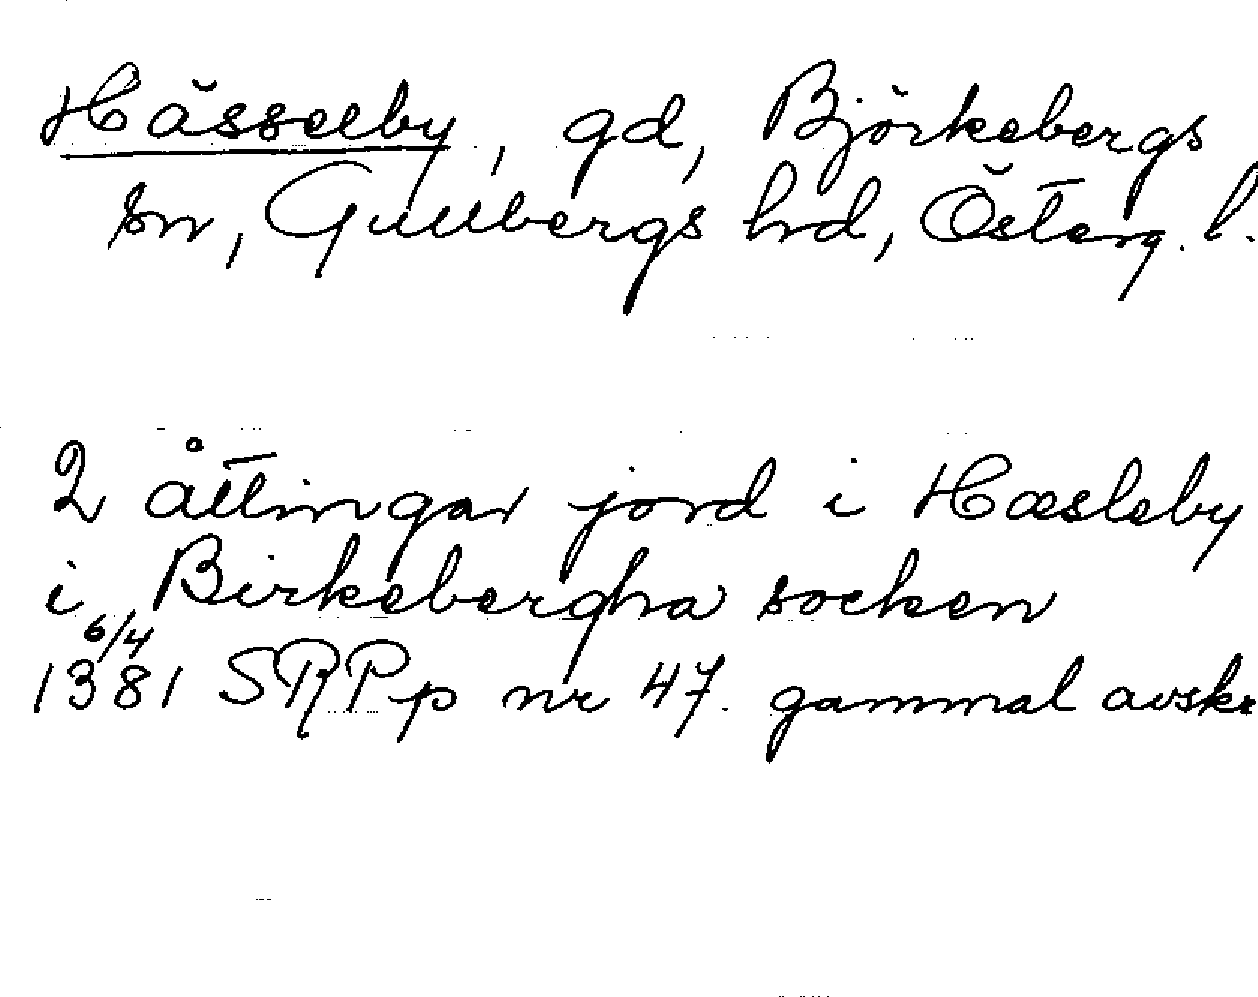 Hässelby, gd, Björkebergs
sn, Gullbergs hrd, Österg. l.
2 åttingar jord i Hæsleby
i Birkebergha socken
6/4
1381 SRPp nr 47. gammal avskr